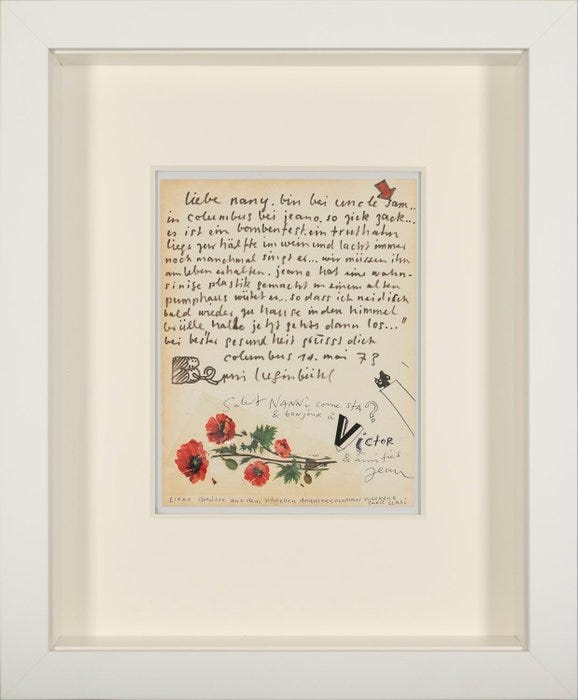 liebe nany. bin bei uncle sam..
in columbus bei jeano. so zick zack...
es ist ein bombenfest. ein truthahn
liegt zur hälfte im wein und lacht immer
noch manchmal singt er... wir müssen ihn
am leben erhalten. jeano hat eine wahn-
sinige plastik gemacht in einem alten
pumphaus wütet er... so dass ich neidisch
bald wieder zu hause in den himmel
brülle hallo jetzt gehts dann los..."
bei bester gesundheit grüsst dich
columbus 14. mai 73
luginbühl
Salut NANNI come sta?
& bonjour à
VICTOR
& amitiés
Jean
LIEBE GRÜSSE AUS DEM COLUMBUS WEEKEND
EUER URSI